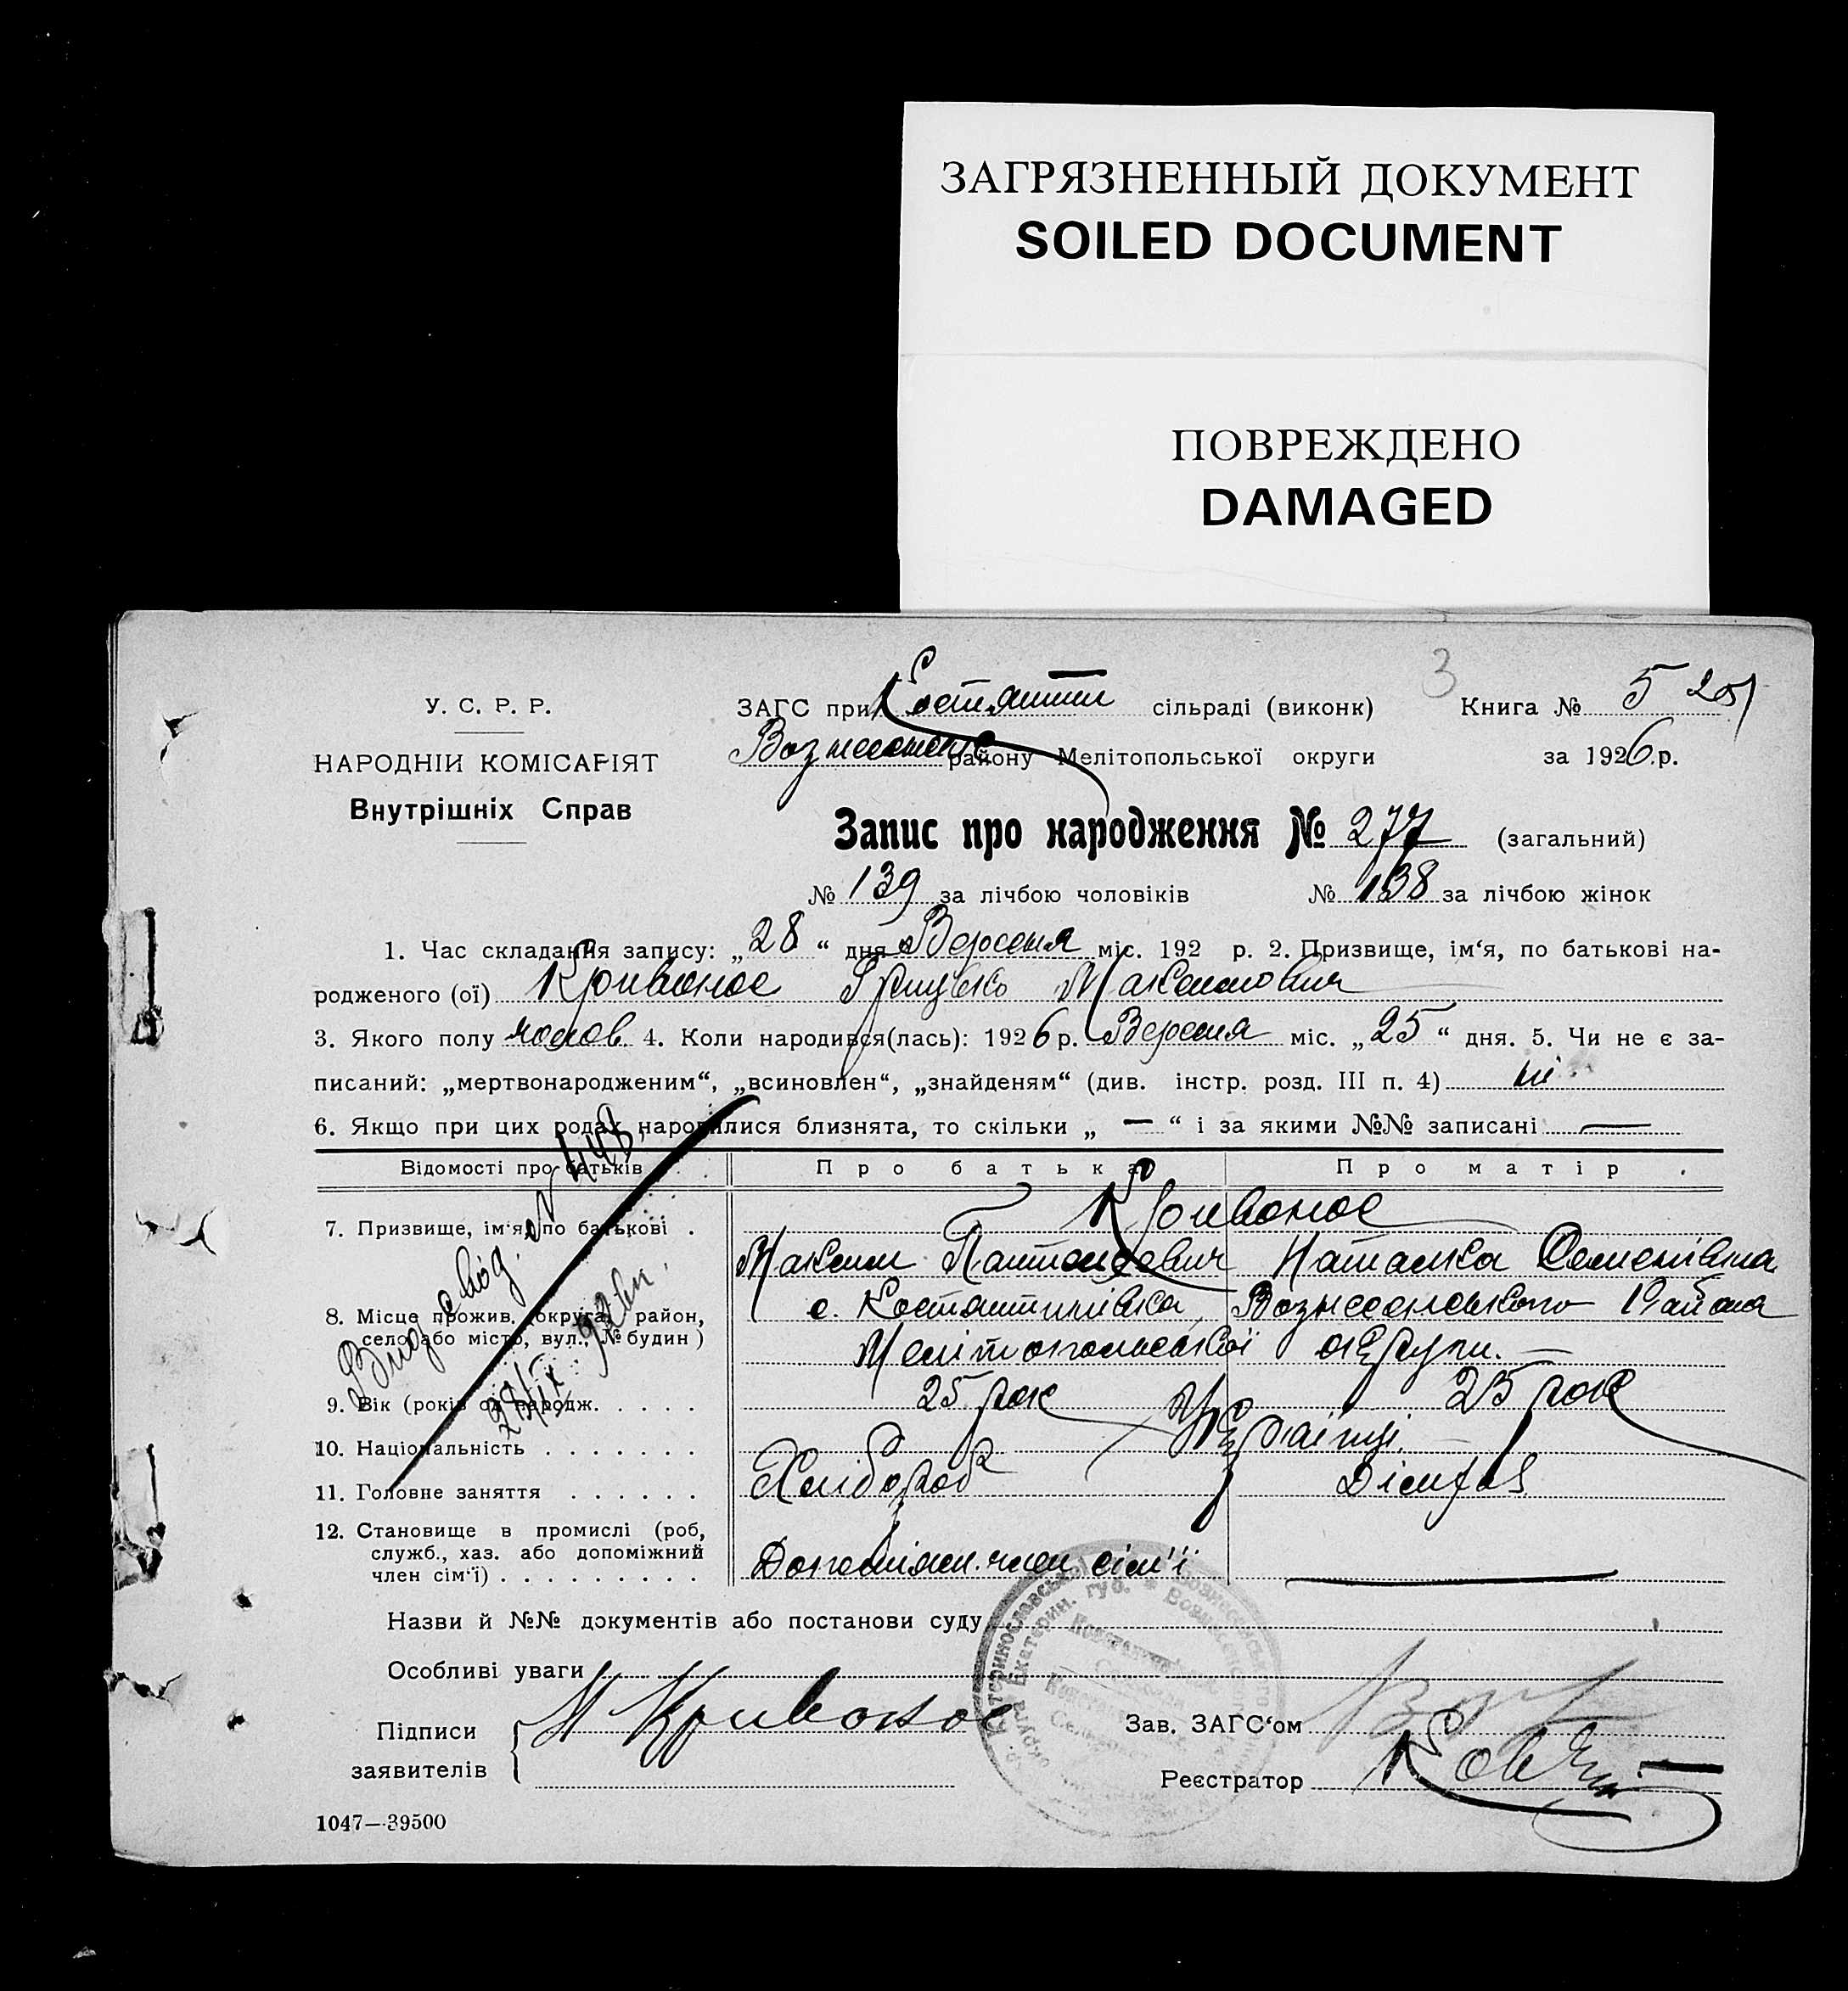 ЗАГРЯЗНЕННЫЙ ДОКУМЕНТ
SOILED DOCUMENT
ПОВРЕЖДЕНО
DAMAGED
3
У. С. Р. Р.
НАРОДНІЙ КОМІСАРІЯТ
Внутрішніх Справ
ЗАГС при Костянтин сільраді (виконк) Книга № 5
Вознесенськ району Мелітопольської округи за 1926 р.
Запис про народження № 277 (загальний)
№ 139 за лічбою чоловіків № 138 за лічбою жінок
1. Час складання запису: „28“ дня Вересня міс. 192 р. 2. Призвище, ім‘я, по батькові на-
родженого (ої) Кривонос Грицько Максимович
3. Якого полу чолов. 4. Коли народився(лась): 1926 р. Вересня міс. „25“ дня. 5. Чи не є за-
писаний: „мертвонародженим“, „всиновлен“, „знайденям“ (див. інстр. розд. III п. 4) ні
6. Якщо при цих родах народилися близнята, то скільки „—“ і за якими №№ записані —
Відомості про батьків Про батька Про матір
7. Призвище, ім‘я, по батькові . Кривонос
Максим Наталка Семенівна
8. Місце прожив. (округа, район, село або місто, вул., № будин) с. Костянтинівка, Вознесенського Району
Мелітопольської округи. —
9. Вік (років од народж. . . . . . 25 рок 25 рок
10. Національність . . . . . . . Українці
11. Головне заняття . . . . . . Хлібороб
12. Становище в промислі (роб,
служб., хаз. або допоміжний
член сім‘ї) . . . . . . . . . Допоміжн. член сім'ї —
Видано №
Назви й №№ документів або постанови суду
Особливі уваги
Підписи
заявителів
М Кривонос
Зав. ЗАГС‘ом
Реєстратор
1047—39500